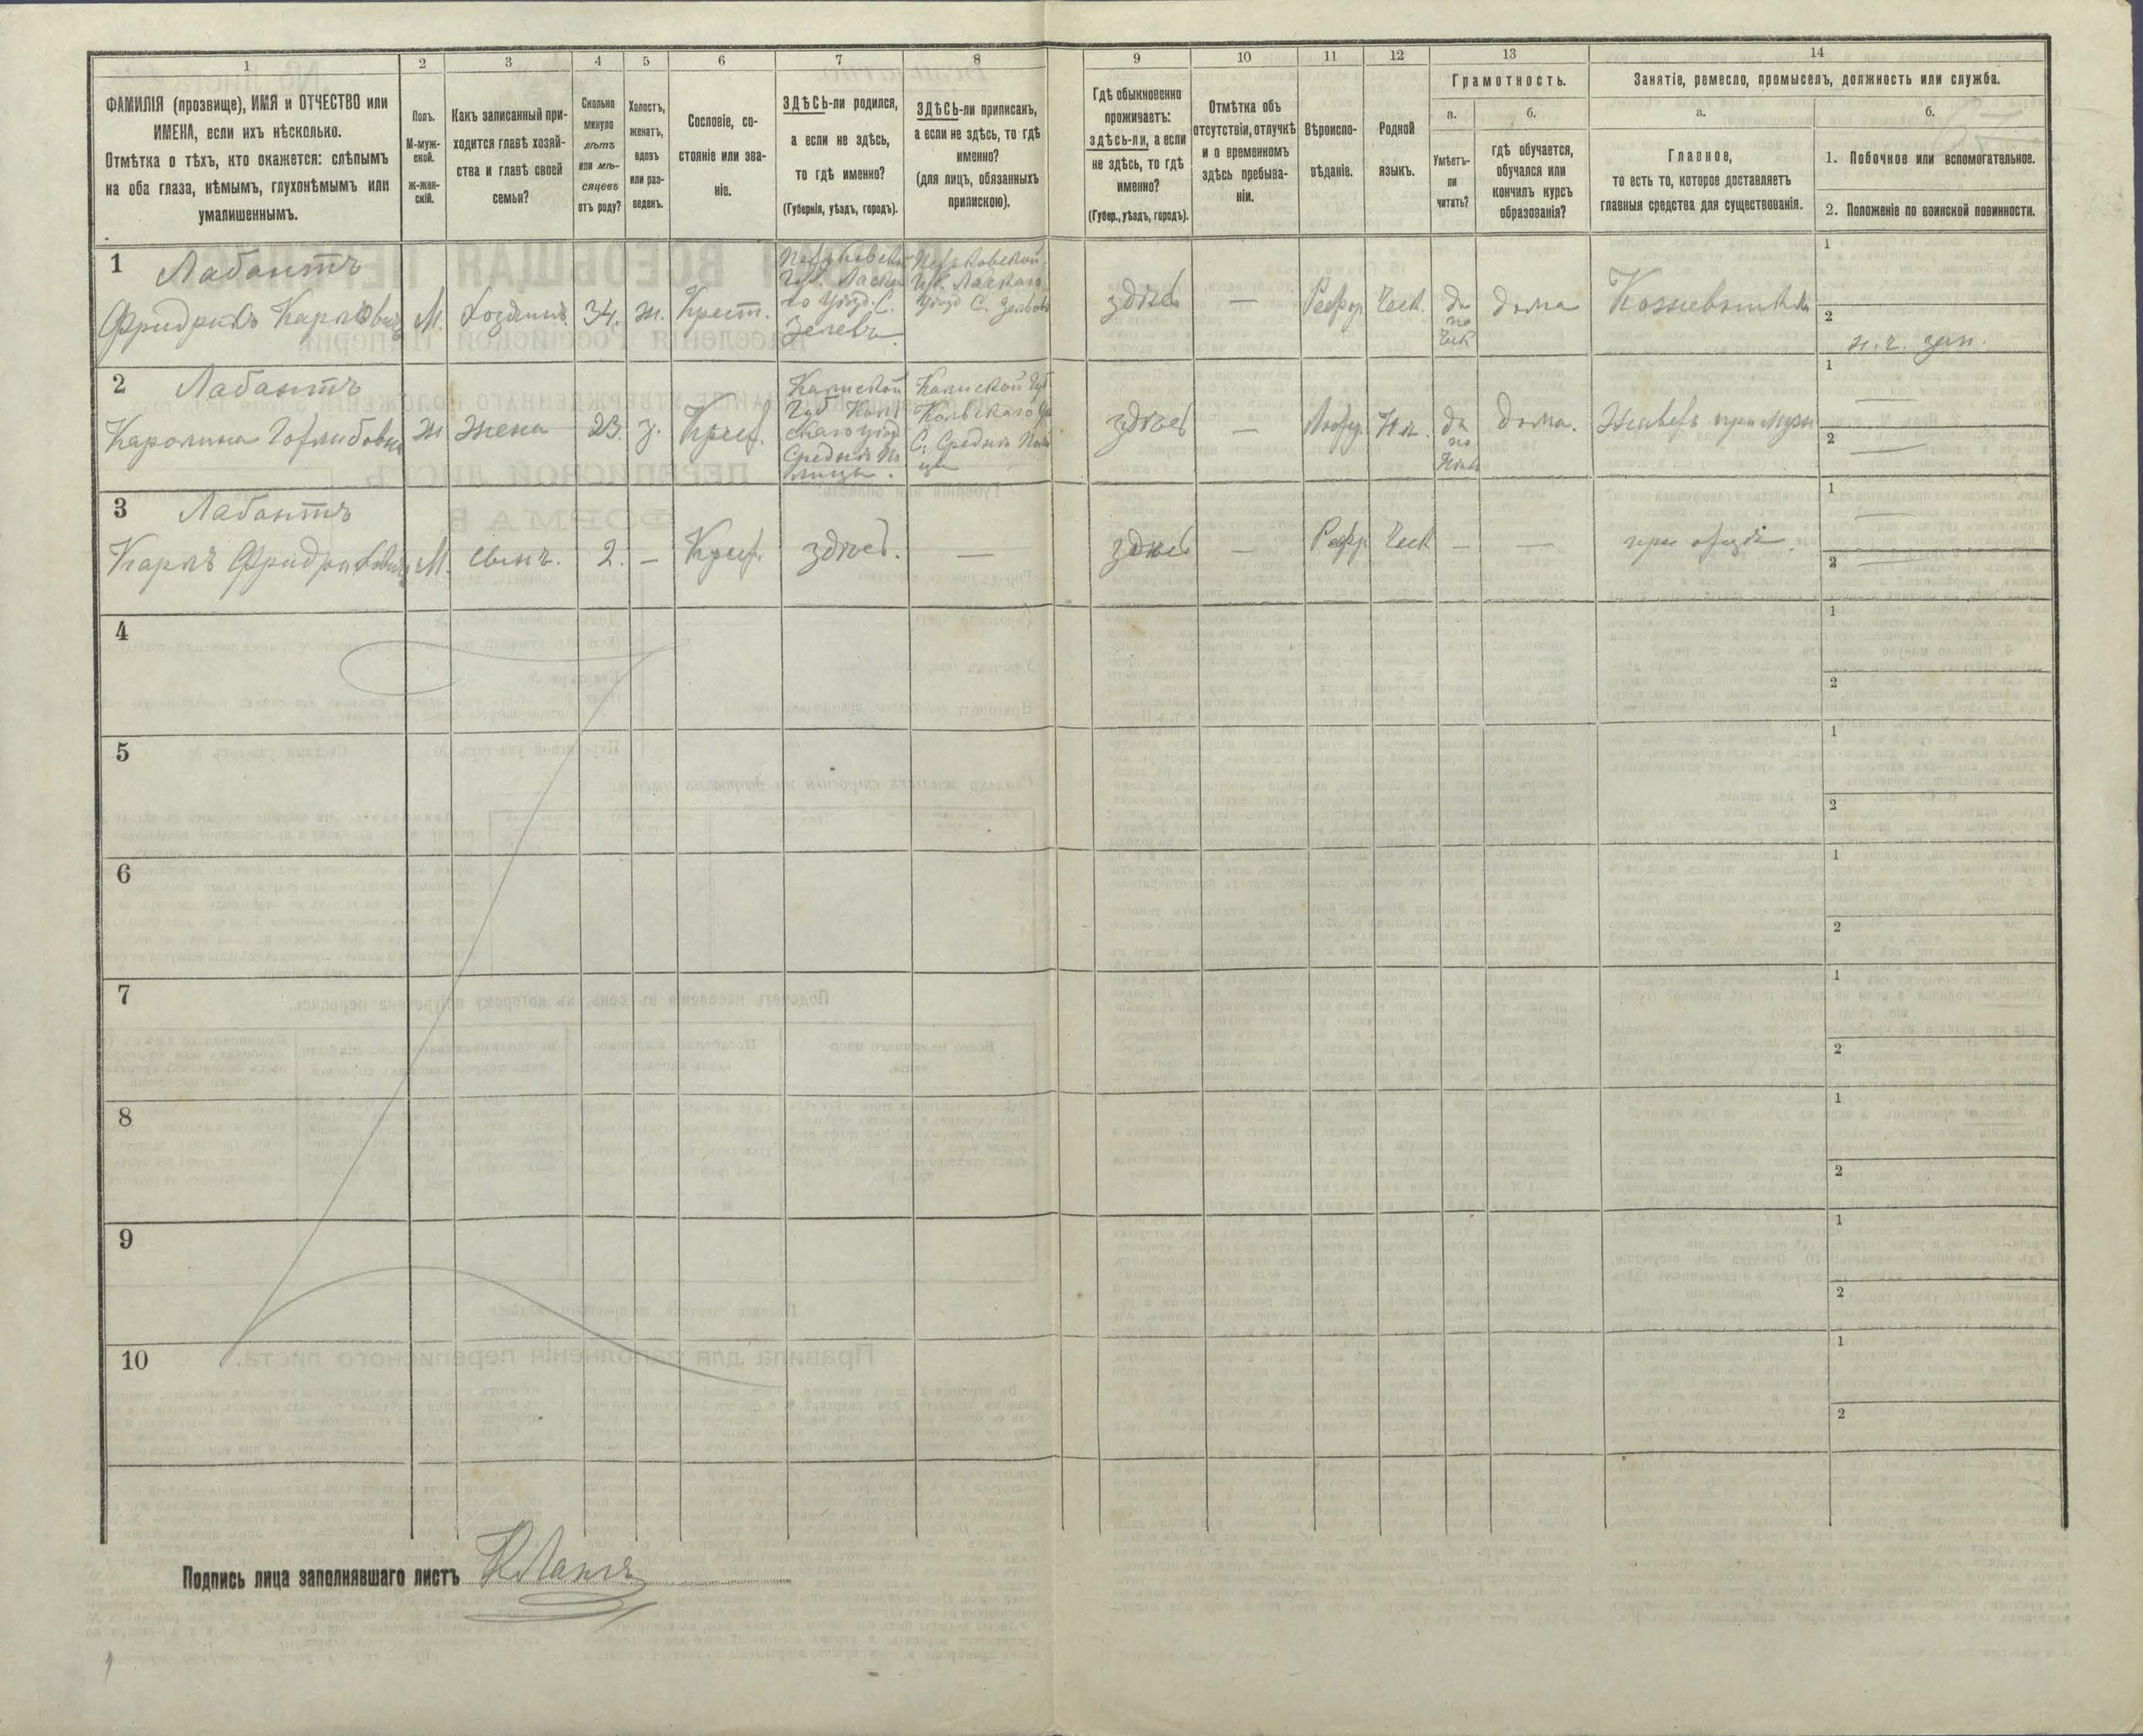 1
ФАМИЛІЯ (прозвище), ИМЯ и ОТЧЕСТВО или
ИМЕНА, если ихъ нѣсколько.
Отмѣтка о тѣхъ, кто окажется: слѣпымъ
на оба глаза, нѣмымъ, глухонѣмымъ или
умалишеннымъ.
2
Полъ.
М-муж-
ской.
ж-жен-
скій.
3
Какъ записанный при-
ходится главѣ хозяй-
ства и главѣ своей
семьи?
4
Сколько
минуло
лѣтъ
или мѣ-
сяцевъ
отъ роду?
5
Холостъ,
женатъ,
вдовъ
или раз-
веденъ.
6
Сословіе, со-
стояніе или зва-
ніе.
7
ЗДѢСЬ-ли родился,
а если не здѣсь,
то гдѣ именно?
(Губернія, уѣздъ, городъ).
8
ЗДѢСЬ-ли приписанъ,
а если не здѣсь, то гдѣ
именно?
(для лицъ, обязанныхъ
припискою).
9
Гдѣ обыкновенно
проживаетъ:
здѣсь-ли, а если
не здѣсь, то гдѣ
именно?
(Губер., уѣздъ, городъ).
10
Отмѣтка объ
отсутствіи, отлучкѣ
и о временномъ
здѣсь пребыва-
ніи.
11
Вѣроиспо-
вѣданіе.
12
Родной
языкъ.
13
Грамотность.
а.
Умѣетъ-
ли
читать?
б.
гдѣ обучается,
обучался или
кончилъ курсъ
образованія?
14
Занятіе, ремесло, промыселъ, должность или служба.
а.
Главное,
то есть то, которое доставляетъ
главныя средства для существованія.
б.
1. Побочное или вспомогательное.
2. Положеніе по воинской повинности.
1 Лабантъ
Фридрихъ Карловичъ
М.
Хозяинъ
34.
ж.
Крест.
Губ. Ласка
го уѣзд. С.
Зелевъ.
Губ. Ласкаго
уѣзд С.
здѣсь
—
Рефор
Чеш.
да
по
Чеш
дома
1
2
н. ч. зап.
2 Лабантъ
Каролина Готлибовна
ж
жена
23.
з.
Крест.
Калишской
Губ Коль
скаго уѣзд
Калишской Губ
Кольскаго
здѣсь
—
Лютер
Нѣм.
да
по
дома.
Живетъ при мужѣ
1 —
2 —
3 Лабантъ
Карлъ Фридриховичъ
М.
сынъ.
2.
—
Крест.
здѣсь.
—
здѣсь
—
Рефор
Чеш
—
—
при отцѣ.
1 —
2 —
4
1
2
5
1
2
6
1
2
7
1
2
8
1
2
9
1
2
10
1
2
Подпись лица заполнявшаго листъ